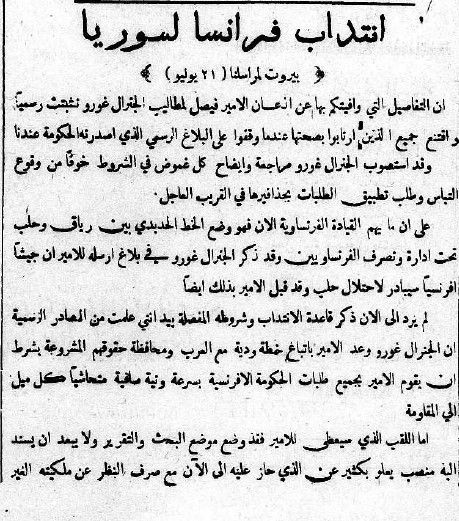 انتداب فرانسا لسوريا
﴿ بيروت لمراسلنا ( ٢١ يوليو ) ﴾
ان التفاصيل التي وافيتكم بها عن اذعان الامير فيصل لمطالب الجنرال غورو تثبتت رسمياً
واقتنع جميع الذين ارتابوا بصحتها عندما وقفوا على البلاغ الرسمي الذي اصدرته الحكومة عندنا
وقد استصوب الجنرال غورو مراجعة وايضاح كل غموض في الشروط خوفاً من وقوع
التباس وطلب تطبيق الطلبات بحذافيرها في القريب العاجل.
على ان ما يهم القيادة الفرنساوية الان فهو وضع الخط الحديدي بين رياق وحلب
تحت ادارة وتصرف الفرنساويين وقد ذكر الجنرال غورو في بلاغ ارسله للامير ان جيشاً
افرنسياً سيبادر لاحتلال حلب وقد قبل الامير بذلك ايضاً
لم يرد الى الان ذكر قاعدة الانتداب وشروطه المفصلة بيد انني علمت من المصادر الرسمية
ان الجنرال غورو وعد الامير باتباغ خطة ودية مع العرب ومحافظة حقوقهم المشروعة بشرط
ان يقوم الامير بجميع طلبات الحكومة الافرنسية بسرعة ونية صافية متحاشياً كل ميل
الى المقاومة
اما اللقب الذي سيعطى للامير فقد وضع موضع البحث والتقرير ولا يبعد ان يسند
اليه منصب يعلو بكثير عن الذي حاز عليه الى الآن مع صرف النظر عن ملكيته الغير